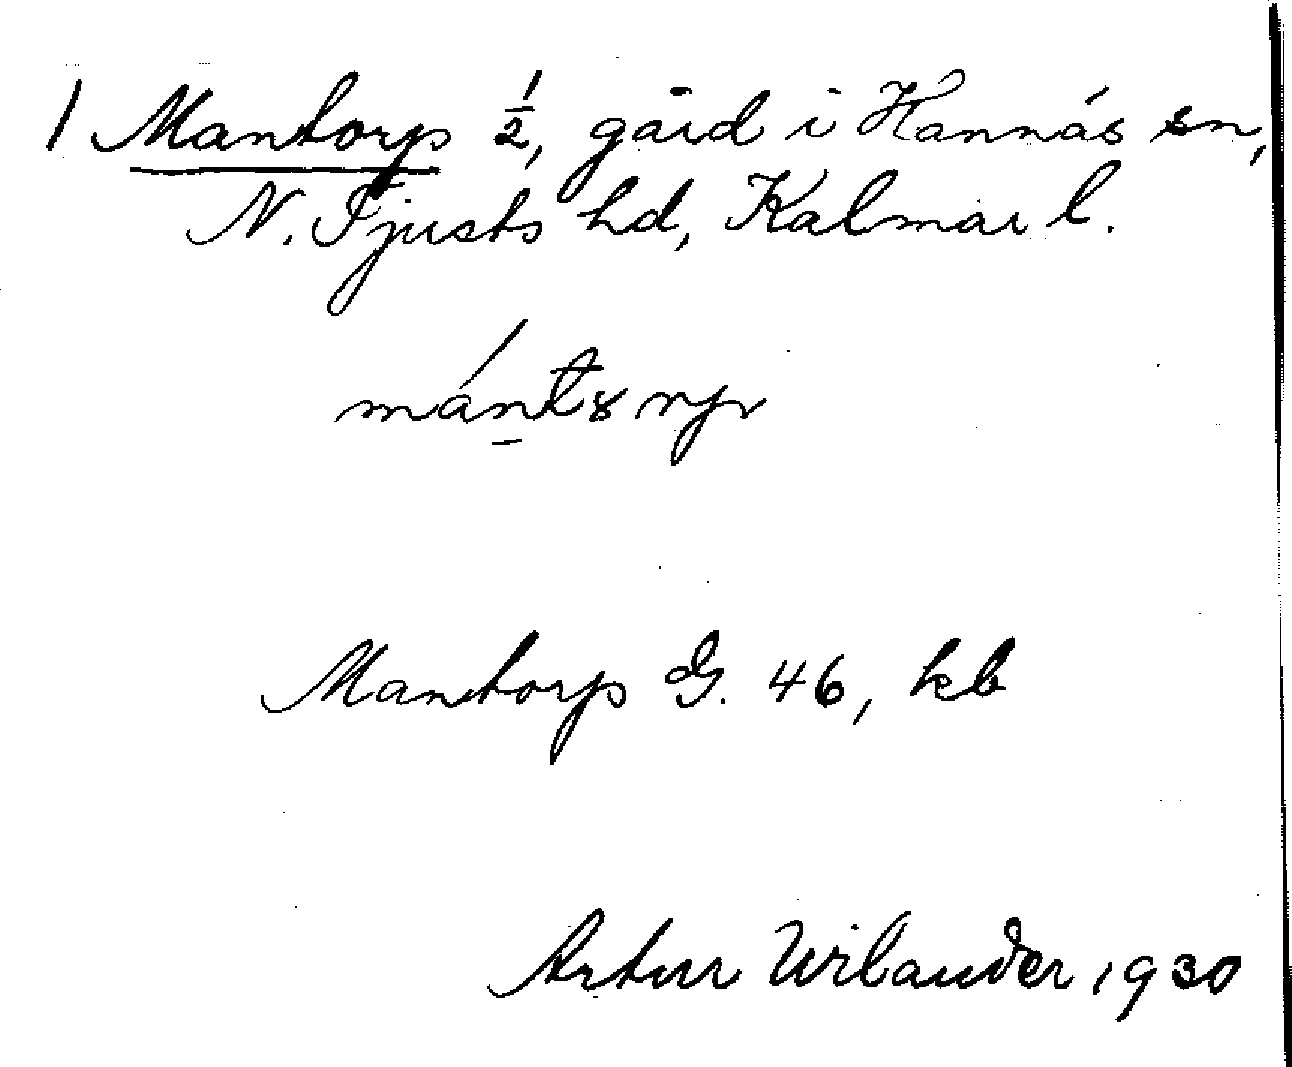 1 Mantorp 1/2, gård i Hannäs sn,
N. Tjusts hd, Kalmar l.
Mantorp G. 46, kb
Artur Wilander 1930